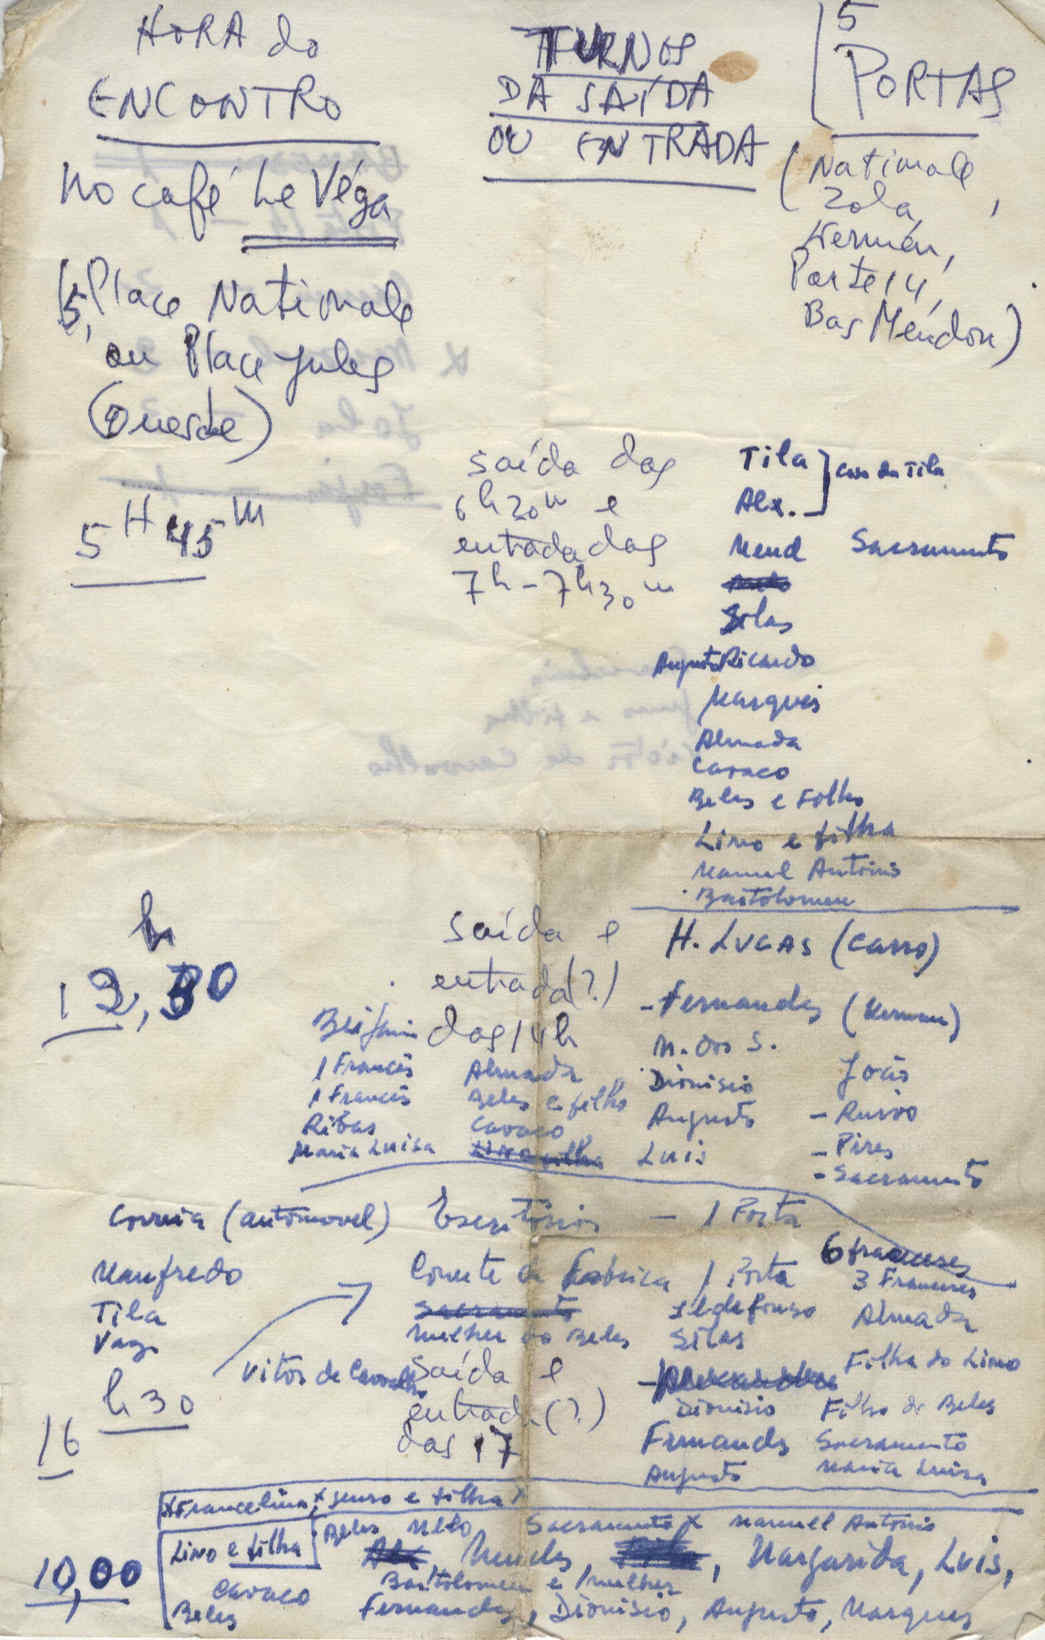 HORA do
ENCONTRO
TURNOS
DA SAÍDA
OU ENTRADA
5
PORTAS
(Nationale,
Zola,
Kerman,
Porte 14,
Bas Méudon)
no café Le Véga
(5, Place Nationale
ou Place Jules
(Duesde)
5H 45m
saída das
6h 30m e
entrada das
7h-7h30m
Tila
Alex.
Casa da Tila
Mend Sacramento
Silas
Augusto Ricardo
Marques
Almada
Cavaco
Beles e Filho
Lino e filha
Manuel António
Bartolomeu
12,30 h
saída e
entrada (?)
das 14h
H. LUCAS (carro)
- Fernandes (Kerman)
M. dos S.
Dionísio João
Augusto - Ruivo
Luis - Pires
- Sacramento
1 Francês Almada
1 Francês Beles e filho
Ribas Cavaco
Maria Luisa Lino e filha
Correia (automovel) Escritórios - 1 Porta
Manfredo
Tila
Vaz
Comité da Fabrica 1 Porta
Sacramento
Mulher do Beles
Vitor de Carvalho
6 franceses
3 Franceses
Ildefonso Almada
Silas
Filha do Lino
- Alexandre
Dionisio Filho do Beles
Fernandes Sacramento
Augusto Maria Luisa
16 h 30
saída e
entrada (?)
das 17
x Francelina, x genro e filha x
Lino e filha
Beles Neto Sacramento x Manuel António
10,00
Mendes, Margarida, Luis,
Cavaco Bartolomeu e mulher
Beles Fernandes, Dionísio, Augusto, Marques